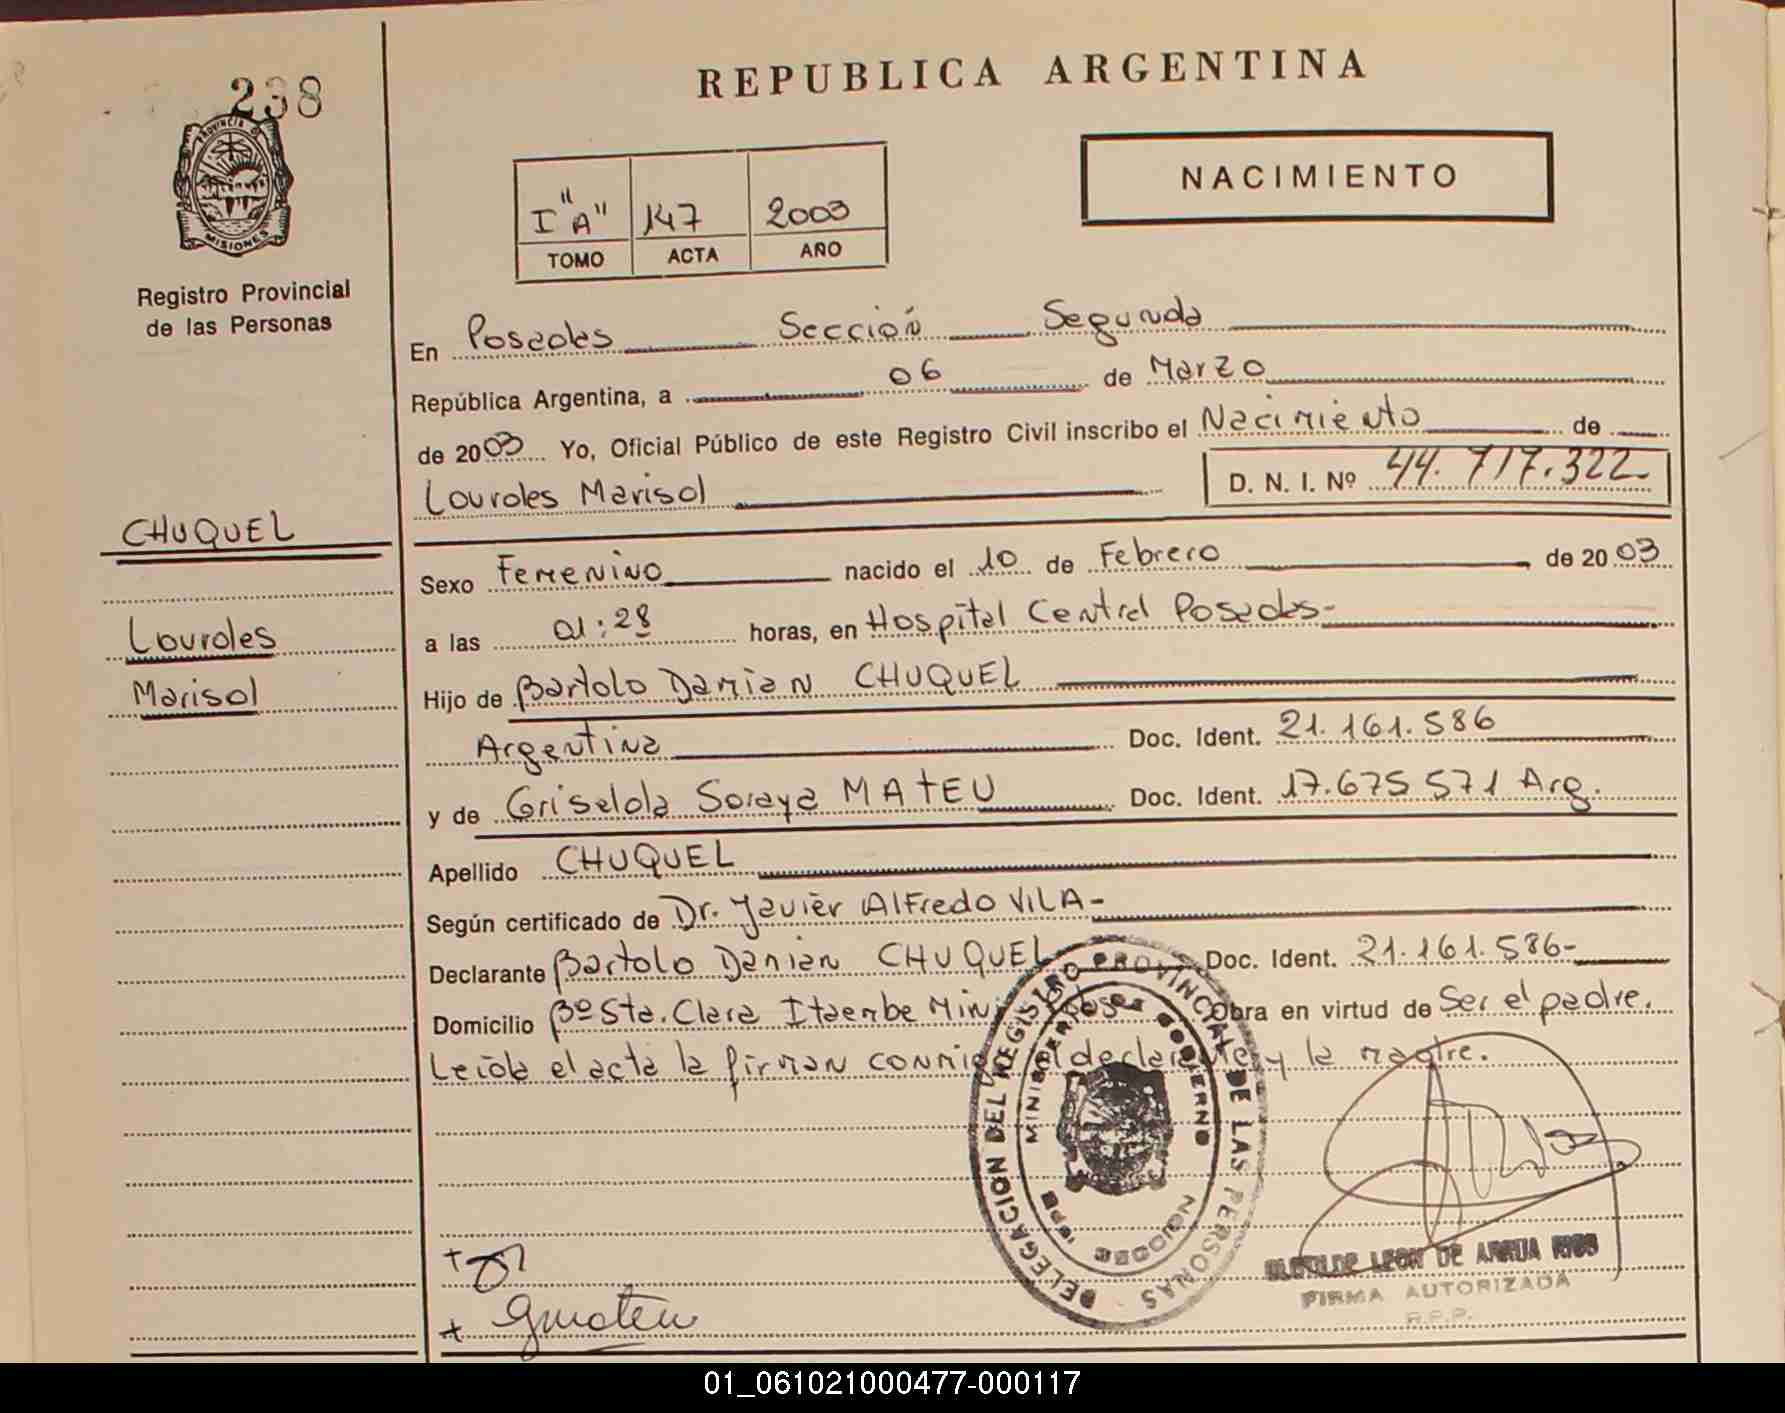 238
REPUBLICA ARGENTINA
NACIMIENTO
PROVINCIA DE
MISIONES
Registro Provincial
de las Personas
I "A" 147 2003
TOMO ACTA AÑO
En Posadas Sección Segunda
República Argentina, a 06 de Marzo
de 2003 Yo, Oficial Público de este Registro Civil inscribo el Nacimiento de
Lourdes Marisol D. N. I. Nº 44.717.322
CHUQUEL
Lourdes
Marisol
Sexo Femenino nacido el 10 de Febrero de 2003
a las 01:28 horas, en Hospital Central Posadas-
Hijo de Bartolo Damian CHUQUEL
Argentina Doc. Ident. 21.161.586
y de Griselda Soraya MATEU Doc. Ident. 17.675571 Arg.
Apellido CHUQUEL
Según certificado de Dr. Javier Alfredo VILA-
Declarante Bartolo Damian CHUQUEL Doc. Ident. 21.161.586-
Domicilio Bº Sta. Clara Itaembe Mini Pos Obra en virtud de Ser el padre.
Leida el acta la firman conmigo el declarante y la madre.
DELEGACION DEL REGISTRO PROVINCIAL DE LAS PERSONAS
GOBIERNO
+
+ gmateu
LEON DE ARRUA RIOS
FIRMA AUTORIZADA
R.P.P.
01_061021000477-000117